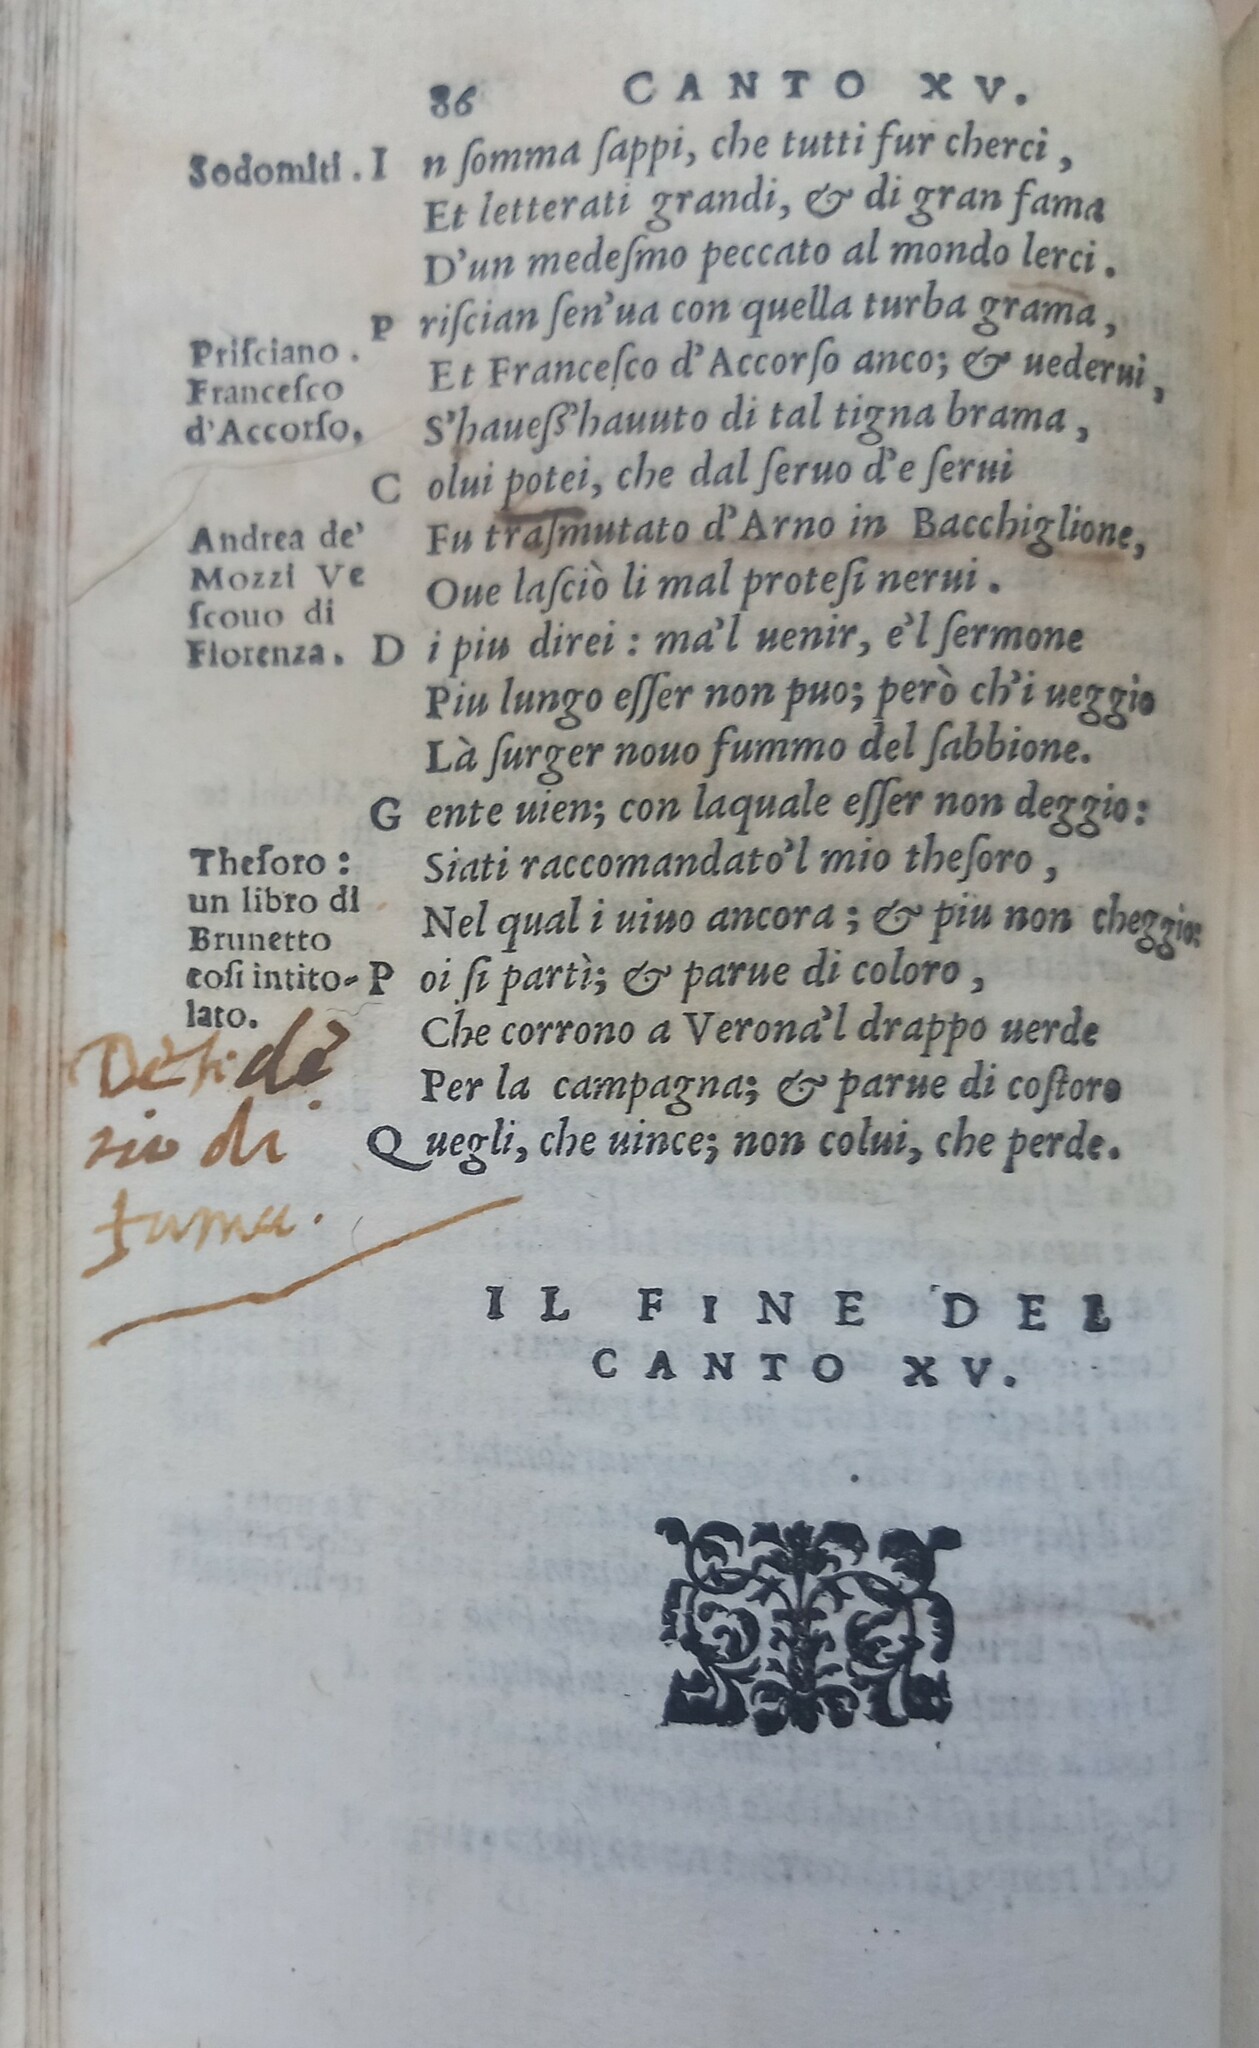 86 CANTO XV.
Sodomiti. In ſomma ſappi, che tutti fur cherci,
Et letterati grandi, & di gran fama
D'un medeſmo peccato al mondo lerci.
Priſcian ſen'ua con quella turba grama,
Priſciano.
Et Franceſco d'Accorſo anco; & uederui,
Franceſco
d'Accorſo,
S'haueſſ'hauuto di tal tigna brama,
Colui potei, che dal ſeruo d'e ſerui
Andrea de'
Fu traſmutato d'Arno in Bacchiglione,
Mozzi Ve
Oue laſciò li mal proteſi nerui.
ſcouo di
Fiorenza.
Di piu direi: ma'l uenir, e'l ſermone
Piu lungo eſſer non puo; però ch'i ueggio
Là ſurger nouo fummo del ſabbione.
Gente uien; con laquale eſſer non deggio:
Theſoro:
Siati raccomandato'l mio theſoro,
un libro di
Nel qual i uiuo ancora; & piu non cheggio:
Brunetto
coſi intito-
Poi ſi partì; & parue di coloro,
lato.
Che corrono a Verona'l drappo uerde
Per la campagna; & parue di coſtoro
Quegli, che uince; non colui, che perde.
Deſide
rio di
fama.
IL FINE DEL
CANTO XV.